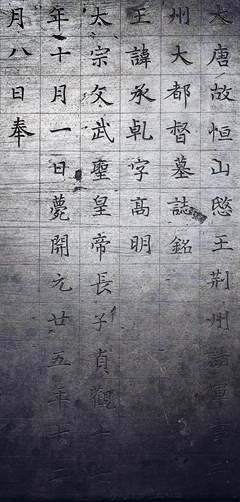 大唐故恒山愍王荊州諸軍事
州大都督墓誌銘
王諱承乹字髙明
太宗文武聖皇帝長子貞觀十
年十月一日薨開元廿五年十二
月八日奉